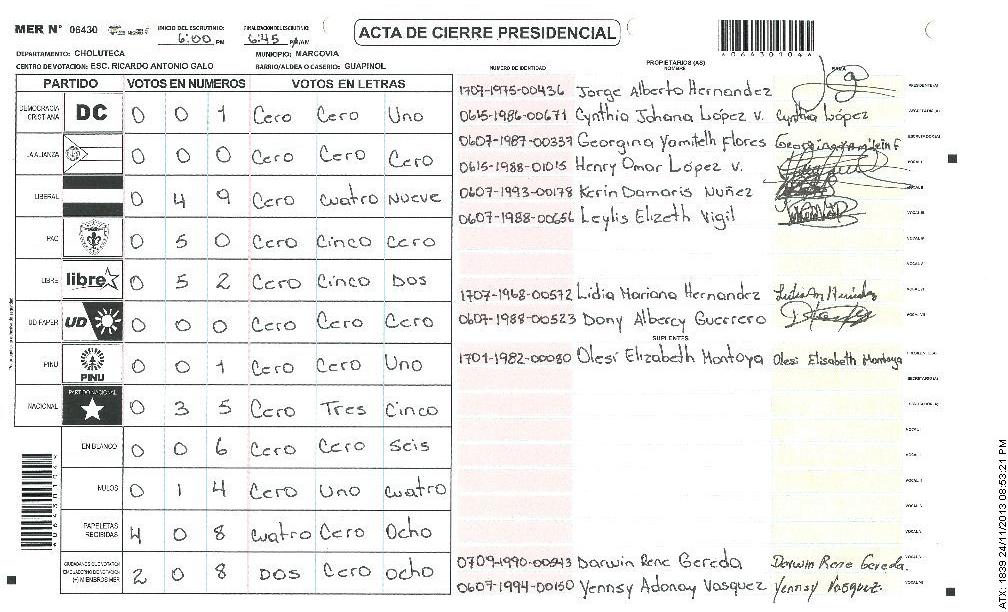 MER N° 06430 INICIO DEL ESCRUTINIO: 6:00 PM FINALIZACION DEL ESCRUTINIO: 6:45 PM/AM
ACTA DE CIERRE PRESIDENCIAL
DEPARTAMENTO: CHOLUTECA MUNICIPIO: MARCOVIA
CENTRO DE VOTACION: ESC. RICARDO ANTONIO GALO BARRIO/ALDEA O CASERIO: GUAPINOL
PARTIDO VOTOS EN NUMEROS VOTOS EN LETRAS
DEMOCRACIA CRISTIANA DC 0 0 1 Cero Cero Uno
LA ALIANZA 0 0 0 Cero Cero Cero
LIBERAL 0 4 9 Cero cuatro Nueve
PAC 0 5 0 Cero Cinco Cero
LIBRE libre 0 5 2 Cero Cinco Dos
UD-FAPER UD 0 0 0 Cero Cero Cero
PINU PINU 0 0 1 Cero Cero Uno
NACIONAL PARTIDO NACIONAL 0 3 5 Cero Tres Cinco
EN BLANCO 0 0 6 Cero Cero Seis
NULOS 0 1 4 Cero Uno cuatro
PAPELETAS RECIBIDAS 4 0 8 cuatro Cero Ocho
CIUDADANOS QUE VOTARON (+) MIEMBROS MER 2 0 8 DOS Cero ocho
NUMERO DE IDENTIDAD PROPIETARIOS (AS) NOMBRE FIRMA
1707-1975-00436 Jorge Alberto Hernandez PRESIDENTE(A)
0615-1986-00671 Cynthia Johana López v. Cynthia López SECRETARIO(A)
0607-1987-00337 Georgina Yamileth Flores Georgina Yamileth F ESCRUTADOR(A)
0615-1988-01015 Henry Omar López v. VOCAL I
0607-1993-00178 Kerin Damaris Nuñez VOCAL II
0607-1988-00656 Leylis Elizeth Vigil VOCAL III
VOCAL IV
VOCAL V
1707-1968-00572 Lidia Mariana Hernandez VOCAL VI
0607-1988-00523 Dony Albercy Guerrero VOCAL VII
SUPLENTES
1701-1982-00080 Olesi Elizabeth Montoya Olesi Elisabeth Montoya
SECRETARIO(A)
ESCRUTADOR(A)
VOCAL I
VOCAL II
VOCAL III
VOCAL IV
VOCAL V
0709-1990-00243 Darwin Rene Gereda Darwin Rene Gereda. VOCAL VI
0607-1994-00150 Yennsy Adonay Vasquez Yennsy Vasquez. VOCAL VII
ATX: 1839 24/11/2013 08:53:21 PM